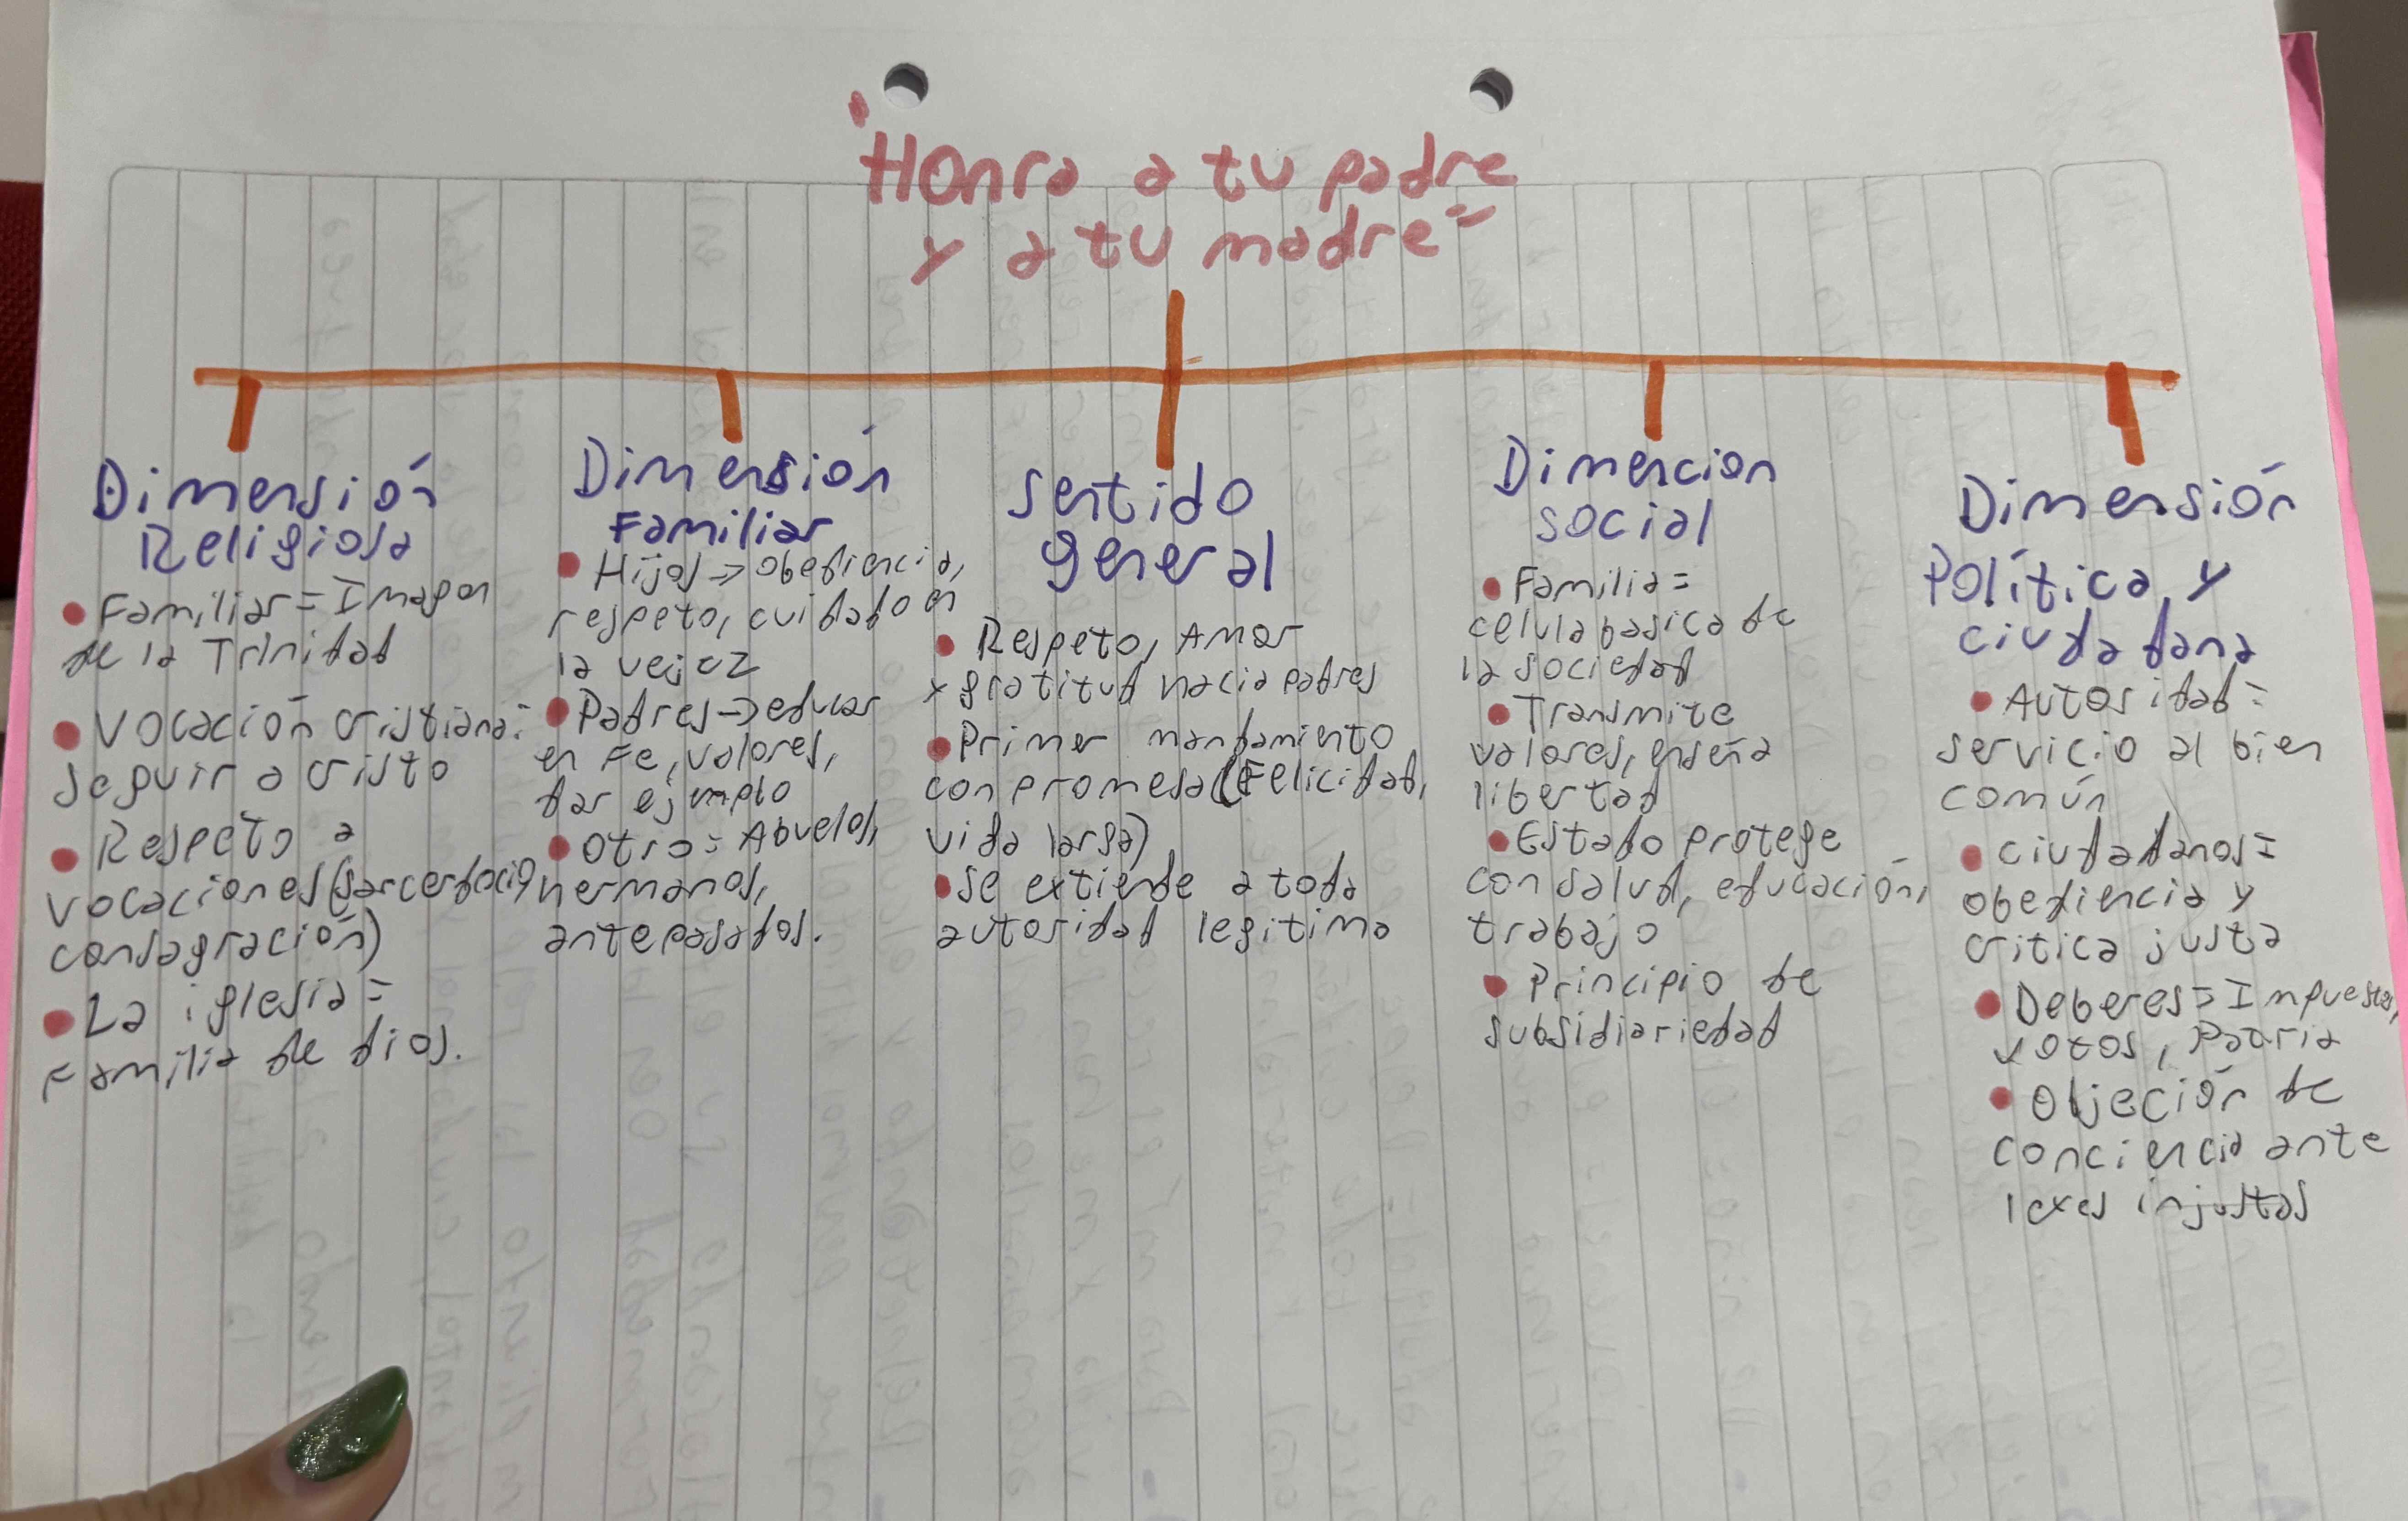 "Honra a tu padre
y a tu madre"
Dimensión
Religiosa
• Familiar = Imagen
de la Trinidad
• Vocación cristiana:
seguir a cristo
• Respeto a
vocaciones (sarcerdocio,
consagración)
• La iglesia =
Familia de dios.
Dimensión
Familiar
• Hijos → obediencia,
respeto, cuidado en
la vejez
• Padres → educar
en Fe, valores,
dar ejemplo
• Otro = Abuelos,
hermanos,
antepasados.
Sentido
general
• Respeto, Amor
y gratitud hacia padres
• Primer mandamiento
con promesa (Felicidad,
vida larga)
• Se extiende a toda
autoridad legitima
Dimencion
social
• Familia =
celula basica de
la sociedad
• Transmite
valores, enseña
libertad
• Estado protege
con salud, educación,
trabajo
• Principio de
subsidiariedad
Dimensión
Política y
ciudadana
• Autoridad =
servicio al bien
común
• ciudadanos =
obediencia y
critica justa
• Deberes = Impuestos,
votos, Patria
• Objeción de
conciencia ante
leyes injustas